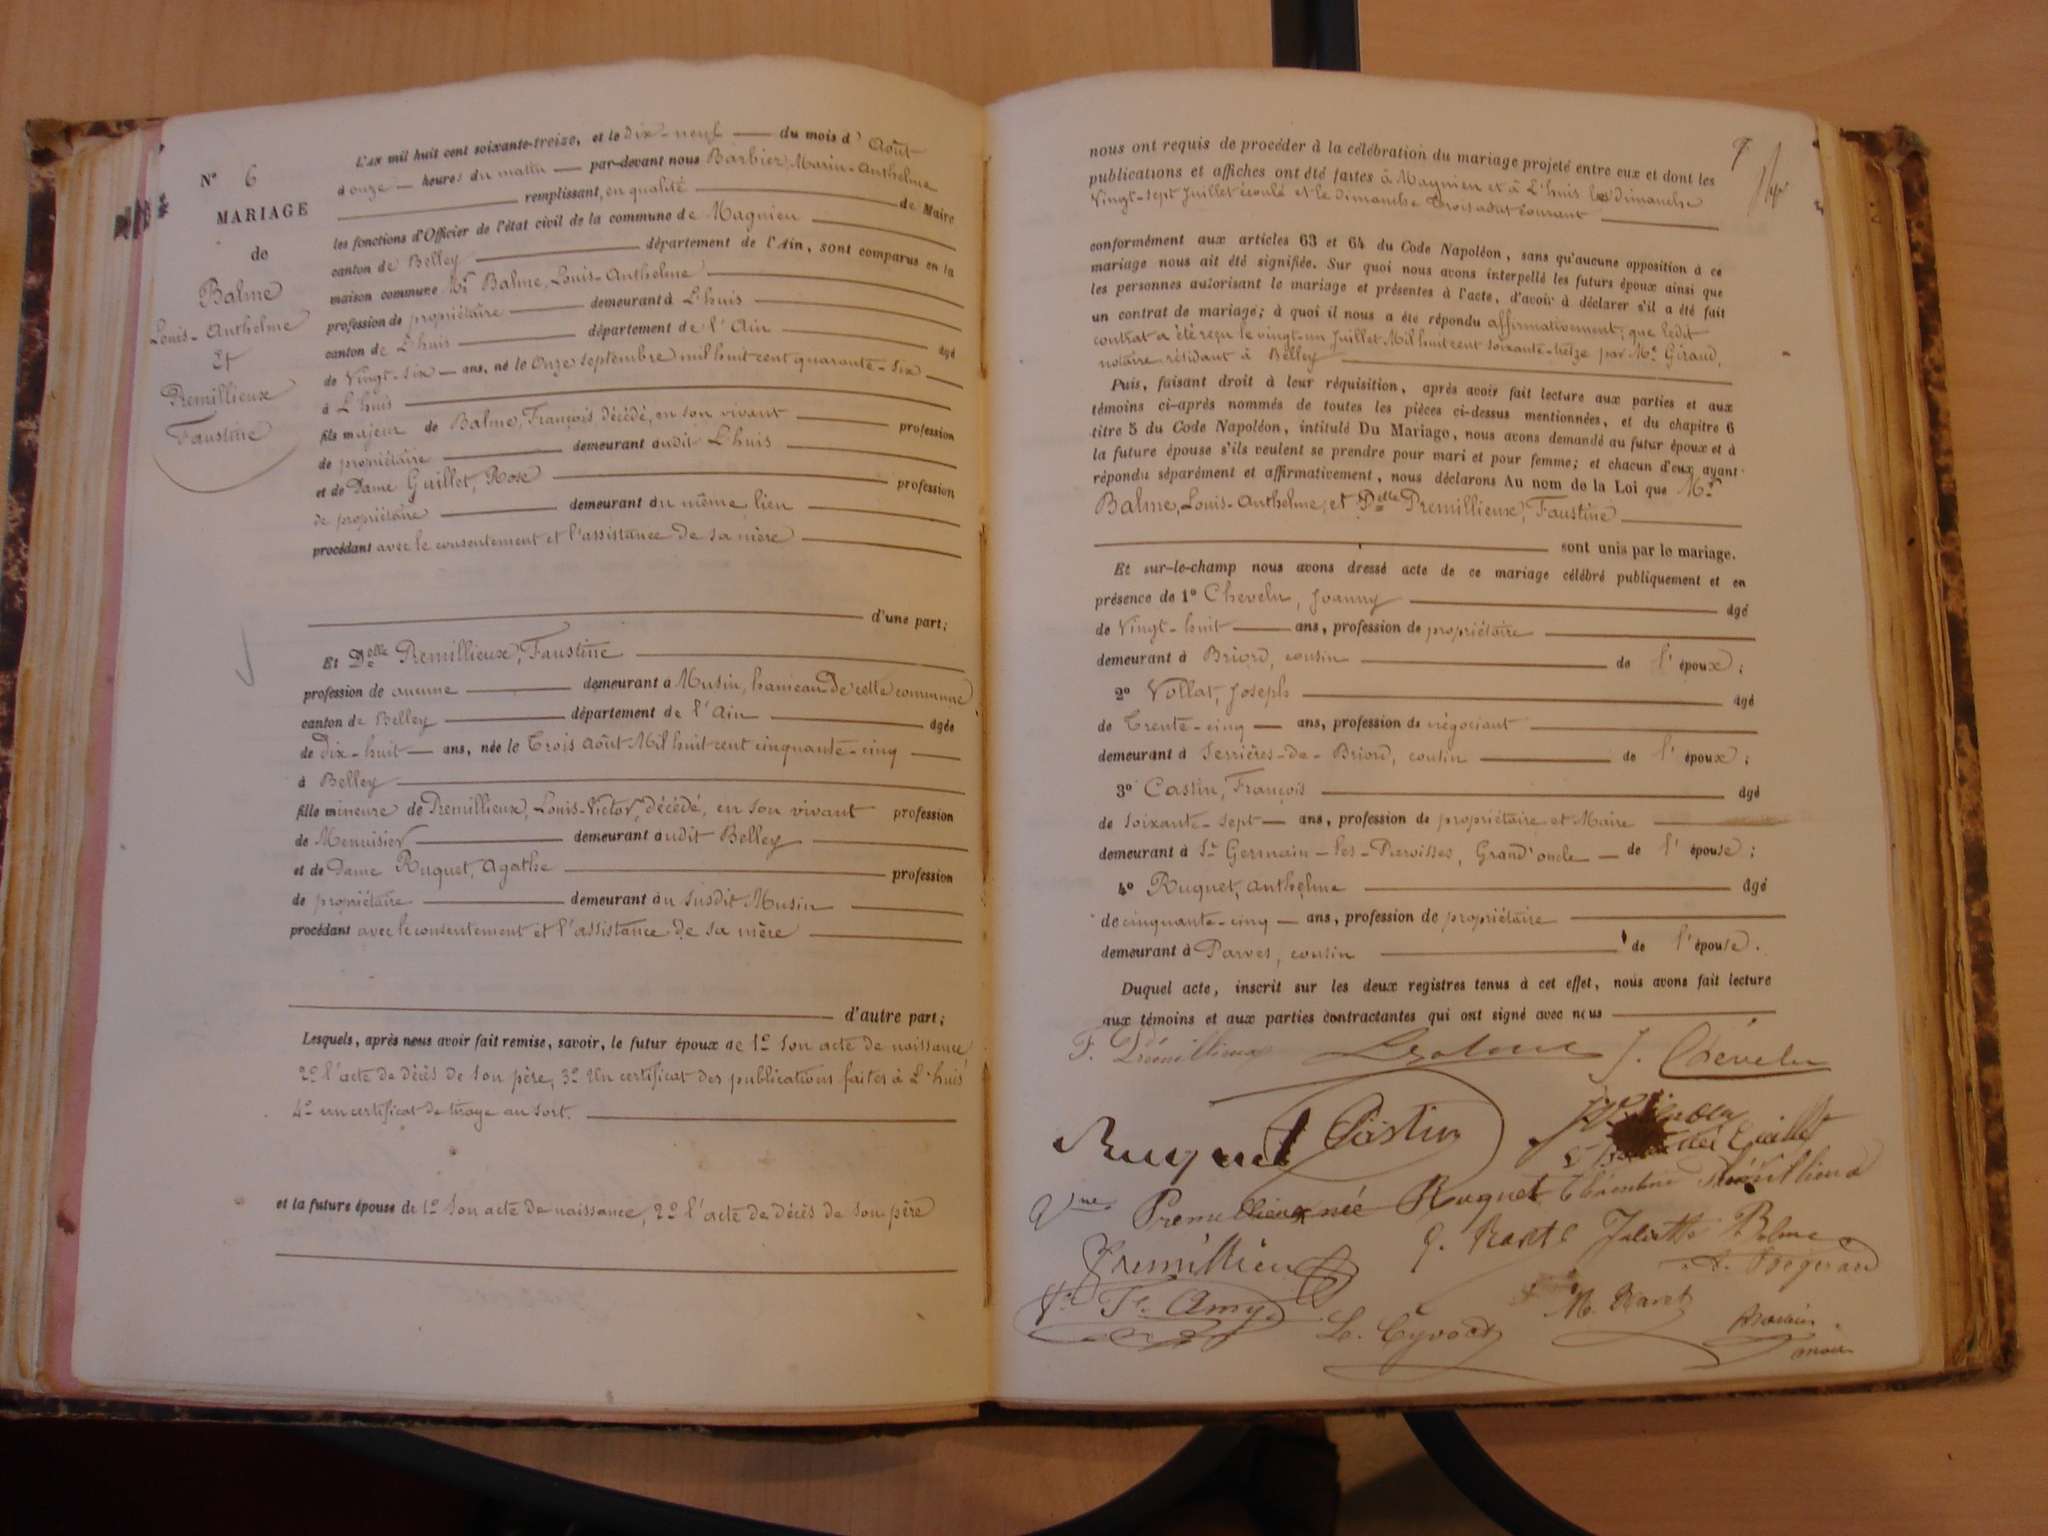 N° 6
MARIAGE
de
Balme
Louis-Anthelme
Et
Premillieux
Faustine
L'AN mil huit cent soixante-treize, et le dix-neuf du mois d'Août
à onze heures du matin par-devant nous Barbier, Marin-Anthelme
remplissant, en qualité de Maire
les fonctions d'Officier de l'état civil de la commune de Magnieu
canton de Belley département de l'Ain, sont comparus en la
maison commune Mr Balme, Louis-Anthelme
profession de propriétaire demeurant à L'huis
canton de L'huis département de l'Ain âgé
de Vingt-six ans, né le Onze septembre mil huit cent quarante-six
à L'huis
fils majeur de Balme, François, décédé, en son vivant profession
de propriétaire demeurant audit L'huis
et de Dame Guillet, Rose profession
de propriétaire demeurant au même lieu
procédant avec le consentement et l'assistance de sa mère
d'une part;
Et Delle Premillieux, Faustine
profession de aucune demeurant à Musin, hameau de cette commune
canton de Belley département de l'Ain âgée
de Dix-huit ans, née le Trois Août Mil huit cent cinquante-cinq
à Belley
fille mineure de Premillieux, Louis-Victor, décédé, en son vivant profession
de Menuisier demeurant audit Belley
et de Dame Ruquet, Agathe profession
de propriétaire demeurant au susdit Musin
procédant avec le consentement et l'assistance de sa mère
d'autre part;
Lesquels, après nous avoir fait remise, savoir, le futur époux de 1° son acte de naissance
2° l'acte de décès de son père, 3° Un certificat des publications faites à L'huis
4° un certificat de tirage au sort.
et la future épouse de 1° son acte de naissance, 2° l'acte de décès de son père
nous ont requis de procéder à la célébration du mariage projeté entre eux et dont les
publications et affiches ont été faites à Magnieu et à L'huis les dimanche
Vingt-sept Juillet écoulé et le dimanche trois août courant
conformément aux articles 63 et 64 du Code Napoléon, sans qu'aucune opposition à ce
mariage nous ait été signifiée. Sur quoi nous avons interpellé les futurs époux ainsi que
les personnes autorisant le mariage et présentes à l'acte, d'avoir à déclarer s'il a été fait
un contrat de mariage; à quoi il nous a été répondu affirmativement, que ledit
contrat a été reçu le vingt-un Juillet Mil huit cent soixante-treize par Me Giraud,
notaire résidant à Belley
Puis, faisant droit à leur réquisition, après avoir fait lecture aux parties et aux
témoins ci-après nommés de toutes les pièces ci-dessus mentionnées, et du chapitre 6
titre 5 du Code Napoléon, intitulé Du Mariage, nous avons demandé au futur époux et à
la future épouse s'ils veulent se prendre pour mari et pour femme; et chacun d'eux ayant
répondu séparément et affirmativement, nous déclarons Au nom de la Loi que Mr
Balme, Louis-Anthelme, et Delle Premillieux, Faustine
sont unis par le mariage.
Et sur-le-champ nous avons dressé acte de ce mariage célébré publiquement et en
présence de 1° Chevelu, Joanny âgé
de Vingt-huit ans, profession de propriétaire
demeurant à Briord, cousin de l'époux;
2° Vollat, Joseph âgé
de Trente-cinq ans, profession de négociant
demeurant à Serrières-de-Briord, cousin de l'époux;
3° Castin, François âgé
de soixante-sept ans, profession de propriétaire et Maire
demeurant à St Germain-les-Paroisses, Grand'oncle de l'épouse;
4° Ruquet, Anthelme âgé
de cinquante-cinq ans, profession de propriétaire
demeurant à Parves, cousin de l'épouse.
Duquel acte, inscrit sur les deux registres tenus à cet effet, nous avons fait lecture
aux témoins et aux parties contractantes qui ont signé avec nous
F. Prémillieux J. Chevelu
Ruquet Castin
Premillieux née Ruquet
Premillieux Juliette Balme